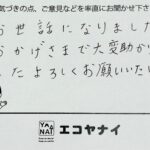 気づきの点、ご意見などを率直にお聞かせ下さ
お世話になりました
おかげさまで大変助か
たよろしくお願いいたい
YANAI
エコヤナイ